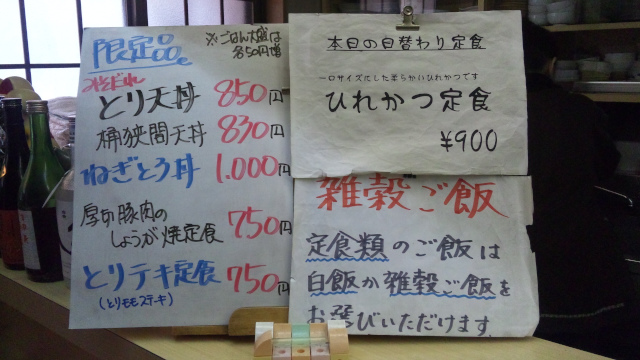 限定品。
※ごはん大盛は
各50円増
みそだれ
とり天丼 850円
桶狭間天丼 830円
ねぎとろ丼 1.000円
厚切豚肉の
しょうが焼定食 750円
とりテキ定食 750円
(とりモモステーキ)
本日の日替わり定食
一口サイズにした柔らかいひれかつです
ひれかつ定食
¥900
雑穀ご飯
定食類のご飯は
白飯か雑穀ご飯を
お選びいただけます。